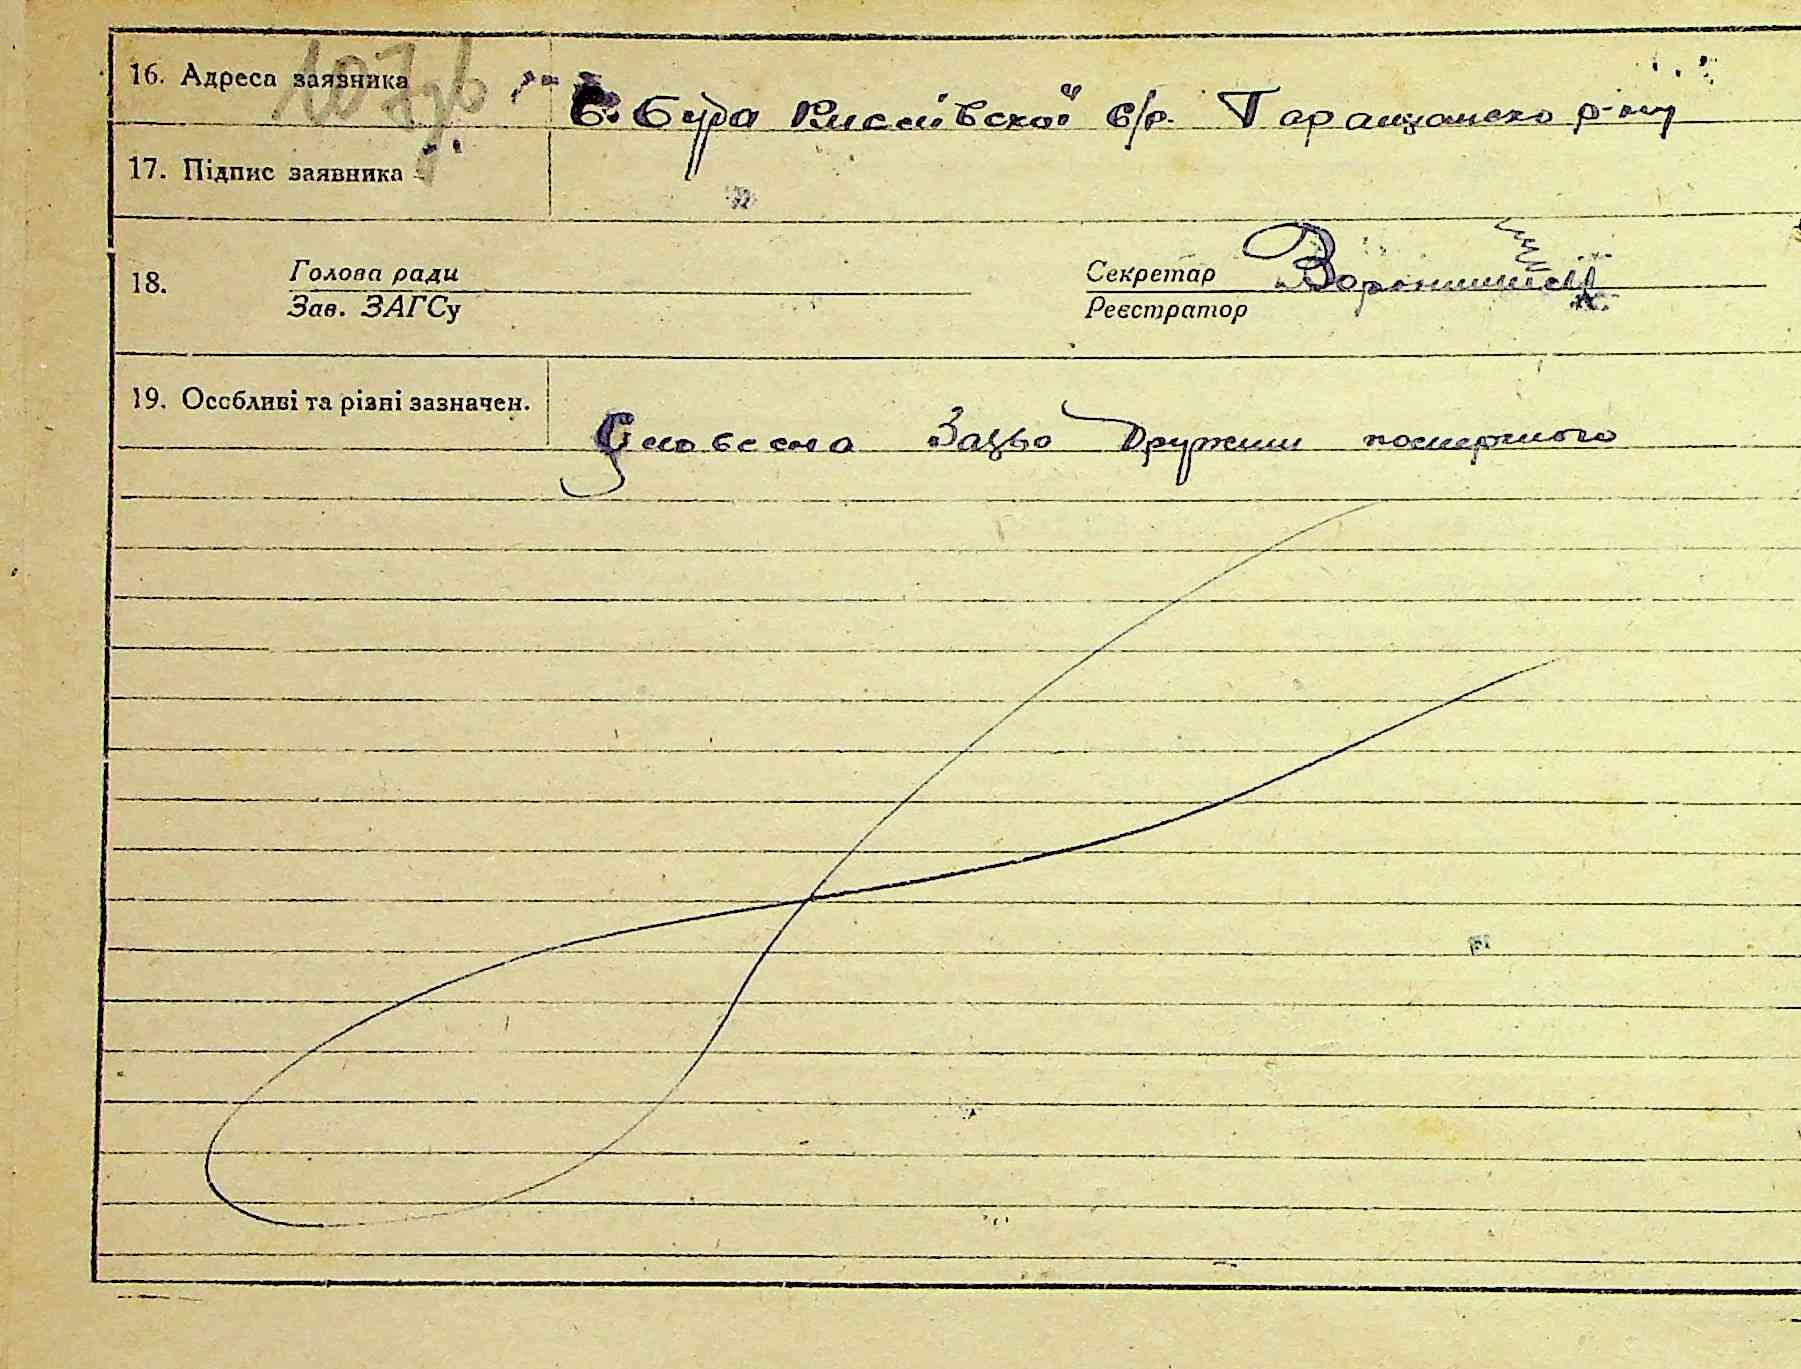 107зв
16. Адреса заявника С. Буда Лисівської с/р. Таращанско р-ну
17. Підпис заявника
18. Голова ради Секретар
Зав. ЗАГСу Реєстратор
19. Особливі та різні зазначен. Словесна Заява Дружини померлого